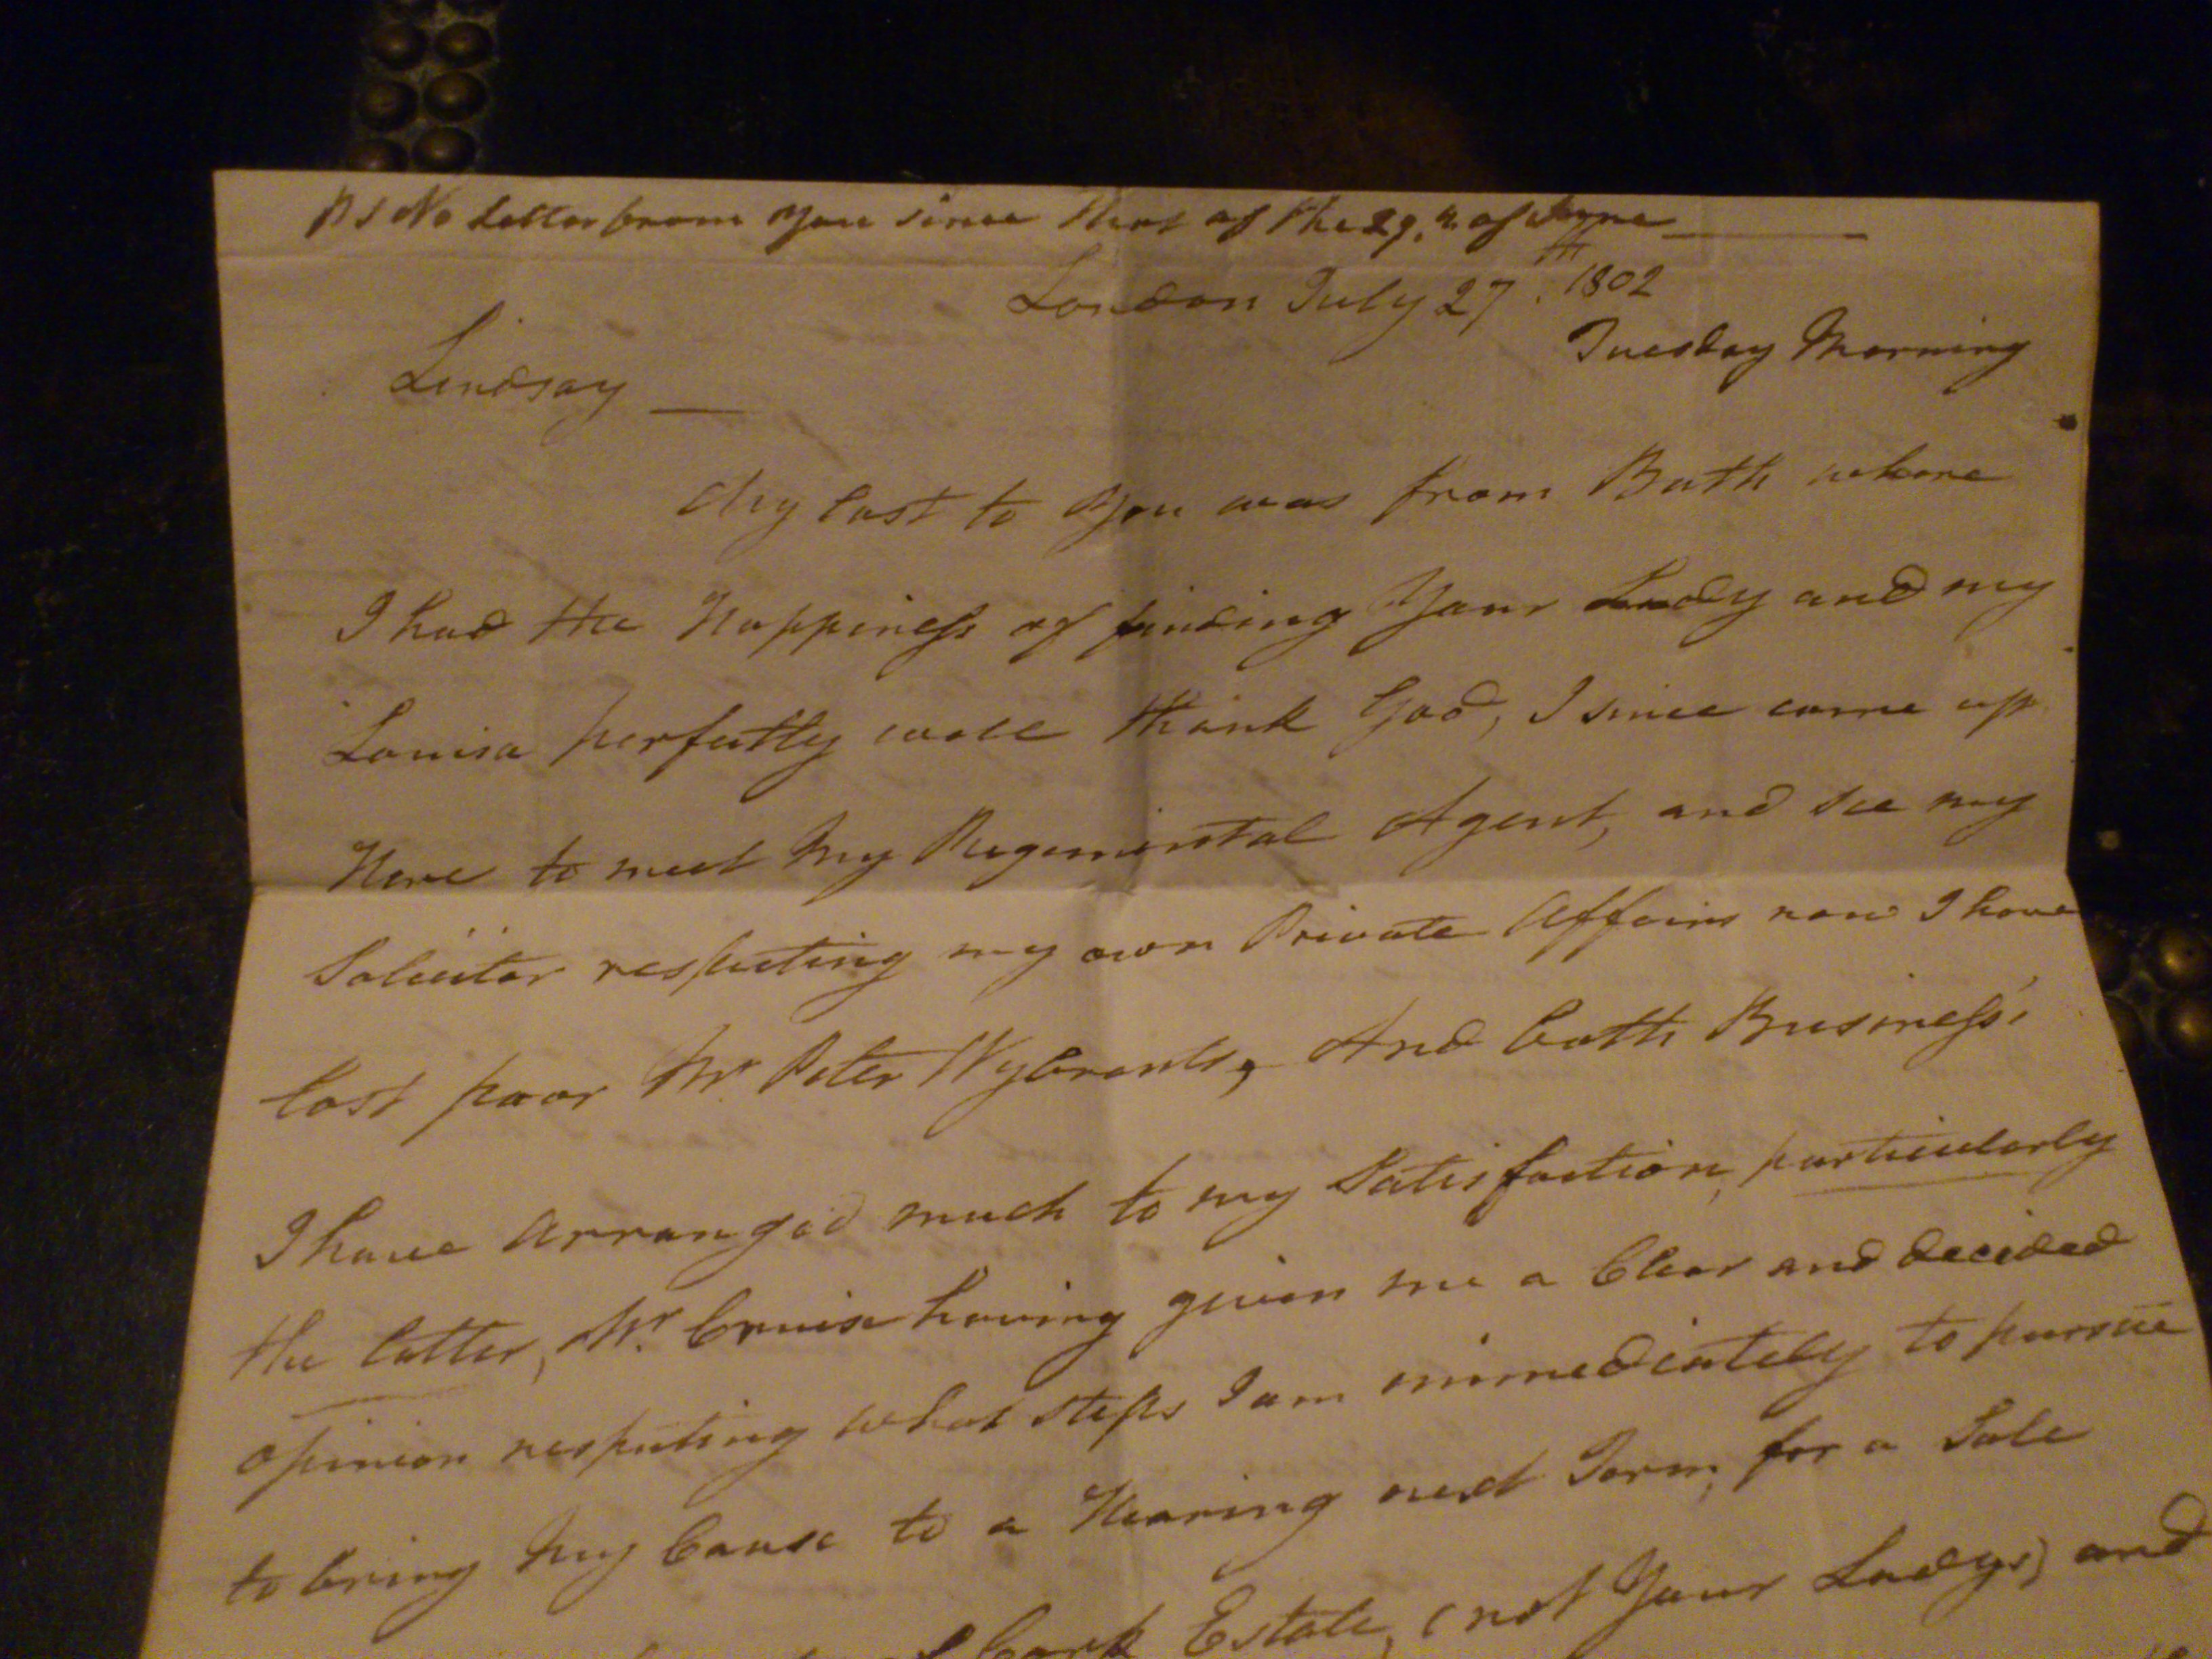 PS No Letter from You since that of the 29.th of June
London July 27th. 1802
Tuesday Morning
Lindsay
My last to You was from Bath where
I had the Happiness of finding Your Lady and my
Louisa perfectly well thank God, I since came up
Here to meet My Regimental Agent, and see my
Solicitor respecting my own Private Affairs now I have
lost poor Mr Peter Wybrants, And both Business'
I have Arranged much to my Satisfaction, particularly
the latter, Mr. Cruise having given me a Clear and decided
opinion respecting what steps I am immediately to pursue
to bring My Cause to a Hearing next Term, for a Sale
Cork Estate, (not Your Ladys) and